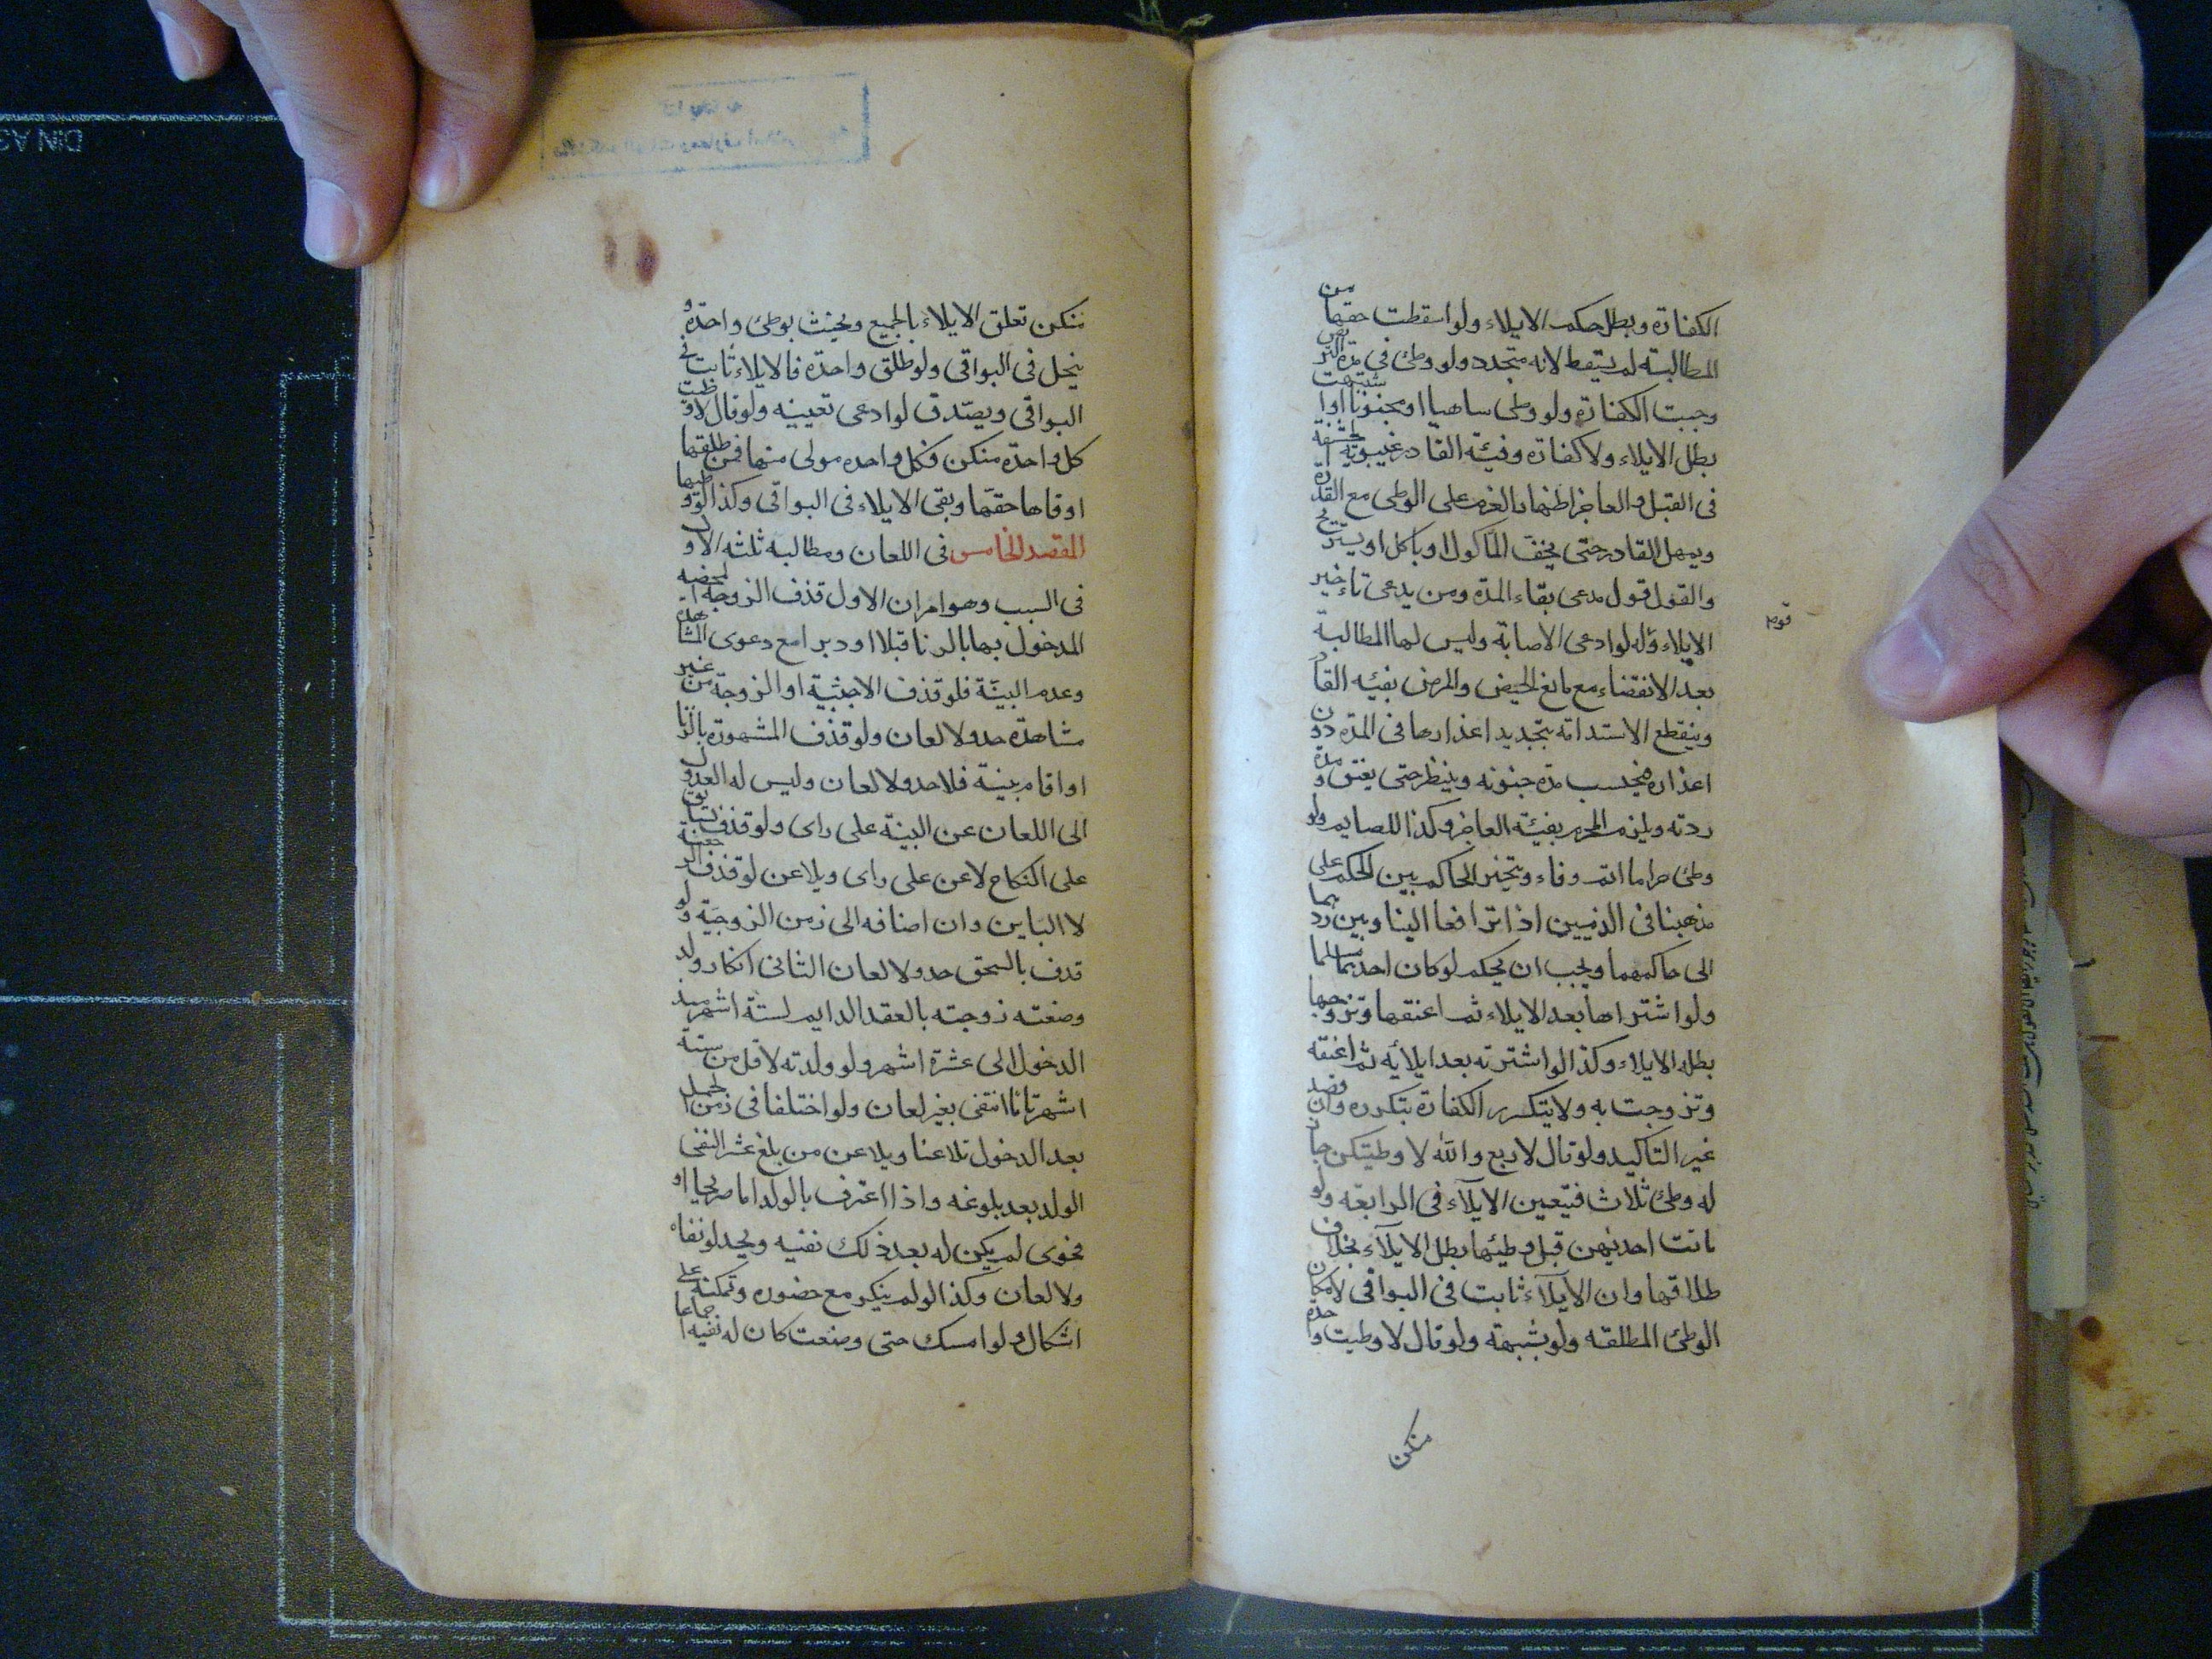 الكفارة ويبطل حكم الايلاء ولو اسقطت حقها من
المطالبة لم يسقط لانه متجدد ولو وطئ في مدة التربص
وجبت الكفارة ولو وطى ساهيا او مجنونا او اشتبهت
بطل الايلاء ولا كفارة وفيئة القادر غيبوبة الحشفة
فى القبل والعاجز اظهار العزم على الوطى مع القدرة
ويمهل القادر حتى يخف الماكول او ياكل او يستريح
والقول قول مدعى بقاء المدة ومن يدعى تاخير
الايلاء وله لو ادعى الاصابة وليس لها المطالبة
قوله
بعد الانقضاء مع مانع الحيض والمرض بفيئه القادر
وينقطع الاستدامة بتجديد اعذارها فى المدة دون
اعذاره فيحتسب مدة جنونه وينتظر حتى يفيق ومدة
ردته ويلزم المحرم بفيئة العاجز وكذا للصايم ولو
وطئ حراما اثم وفاء ويتخير الحاكم بين الحكم على
مذهبنا فى الذميين اذا ترافعا الينا وبين ردهما
الى حاكمهما ويجب ان يحكم لو كان احدهما مسلما
ولو اشتراها بعد الايلاء ثم اعتقها وتزوجها
بطل الايلاء وكذا لو اشترته بعد ايلائه ثم اعتقه
وتزوجت به ولا يتكرر الكفارة بتكرره وان قصد
غير التاكيد ولو قال لاربع والله لا وطيتكن جاز
له وطئ ثلاث فيتعين الايلاء فى الرابعة ولو
ماتت احديهن قبل وطيها بطل الايلاء بخلاف
طلاقها وان الايلاء ثابت فى البواقى لامكان
الوطئ المطلقه ولو بشبهة ولو قال لا وطيت واحدة
منكن
منكن تعلق الايلاء بالجميع ويحنث بوطئ واحدة و
ينحل فى البواقى ولو طلق واحدة فالايلاء ثابت فى
البواقى ويصدق لو ادعى تعيينه ولو قال لا وطئت
كل واحدة منكن فكل واحده مولى منها فمن طلقها
اوفاها حقها وبقى الايلاء فى البواقى وكذا لو وطيها
المقصد الخامس فى اللعان ومطالبه ثلثه الاول
فى السبب وهو امران الاول قذف الزوجة المحصنه
المدخول بها بالزنا قبلا او دبرا مع دعوى المشاهدة
وعدم البينة فلو قذف الاجنبية او الزوجة من غير
مشاهدة حد ولا لعان ولو قذف المشهورة بالزنا
او اقام بينة فلا حد ولا لعان وليس له العدول
الى اللعان عن البينة على راى ولو قذف بسابق
على النكاح لاعن على راى ويلاعن لو قذف الرجعية
لا الباين وان اضافه الى زمن الزوجية ولو
قذف بالسحق حد ولا لعان الثانى انكار ولد
وضعته زوجته بالعقد الدايم لستة اشهر منذ
الدخول الى عشرة اشهر ولو ولدته لاقل من ستة
اشهر تاما انتفى بغير لعان ولو اختلفا فى زمن الحمل
بعد الدخول تلاعنا ويلاعن من بلغ عشرا لنفى
الولد بعد بلوغه واذا اعترف بالولد اما صريحا او
فحوى لم يكن له بعد ذلك نفيه ويحد لو نفاه
ولا لعان وكذا لو لم ينكر مع حضوره وتمكنه على
اشكال ولو امسك حتى وضعت كان له نفيه اجماعا